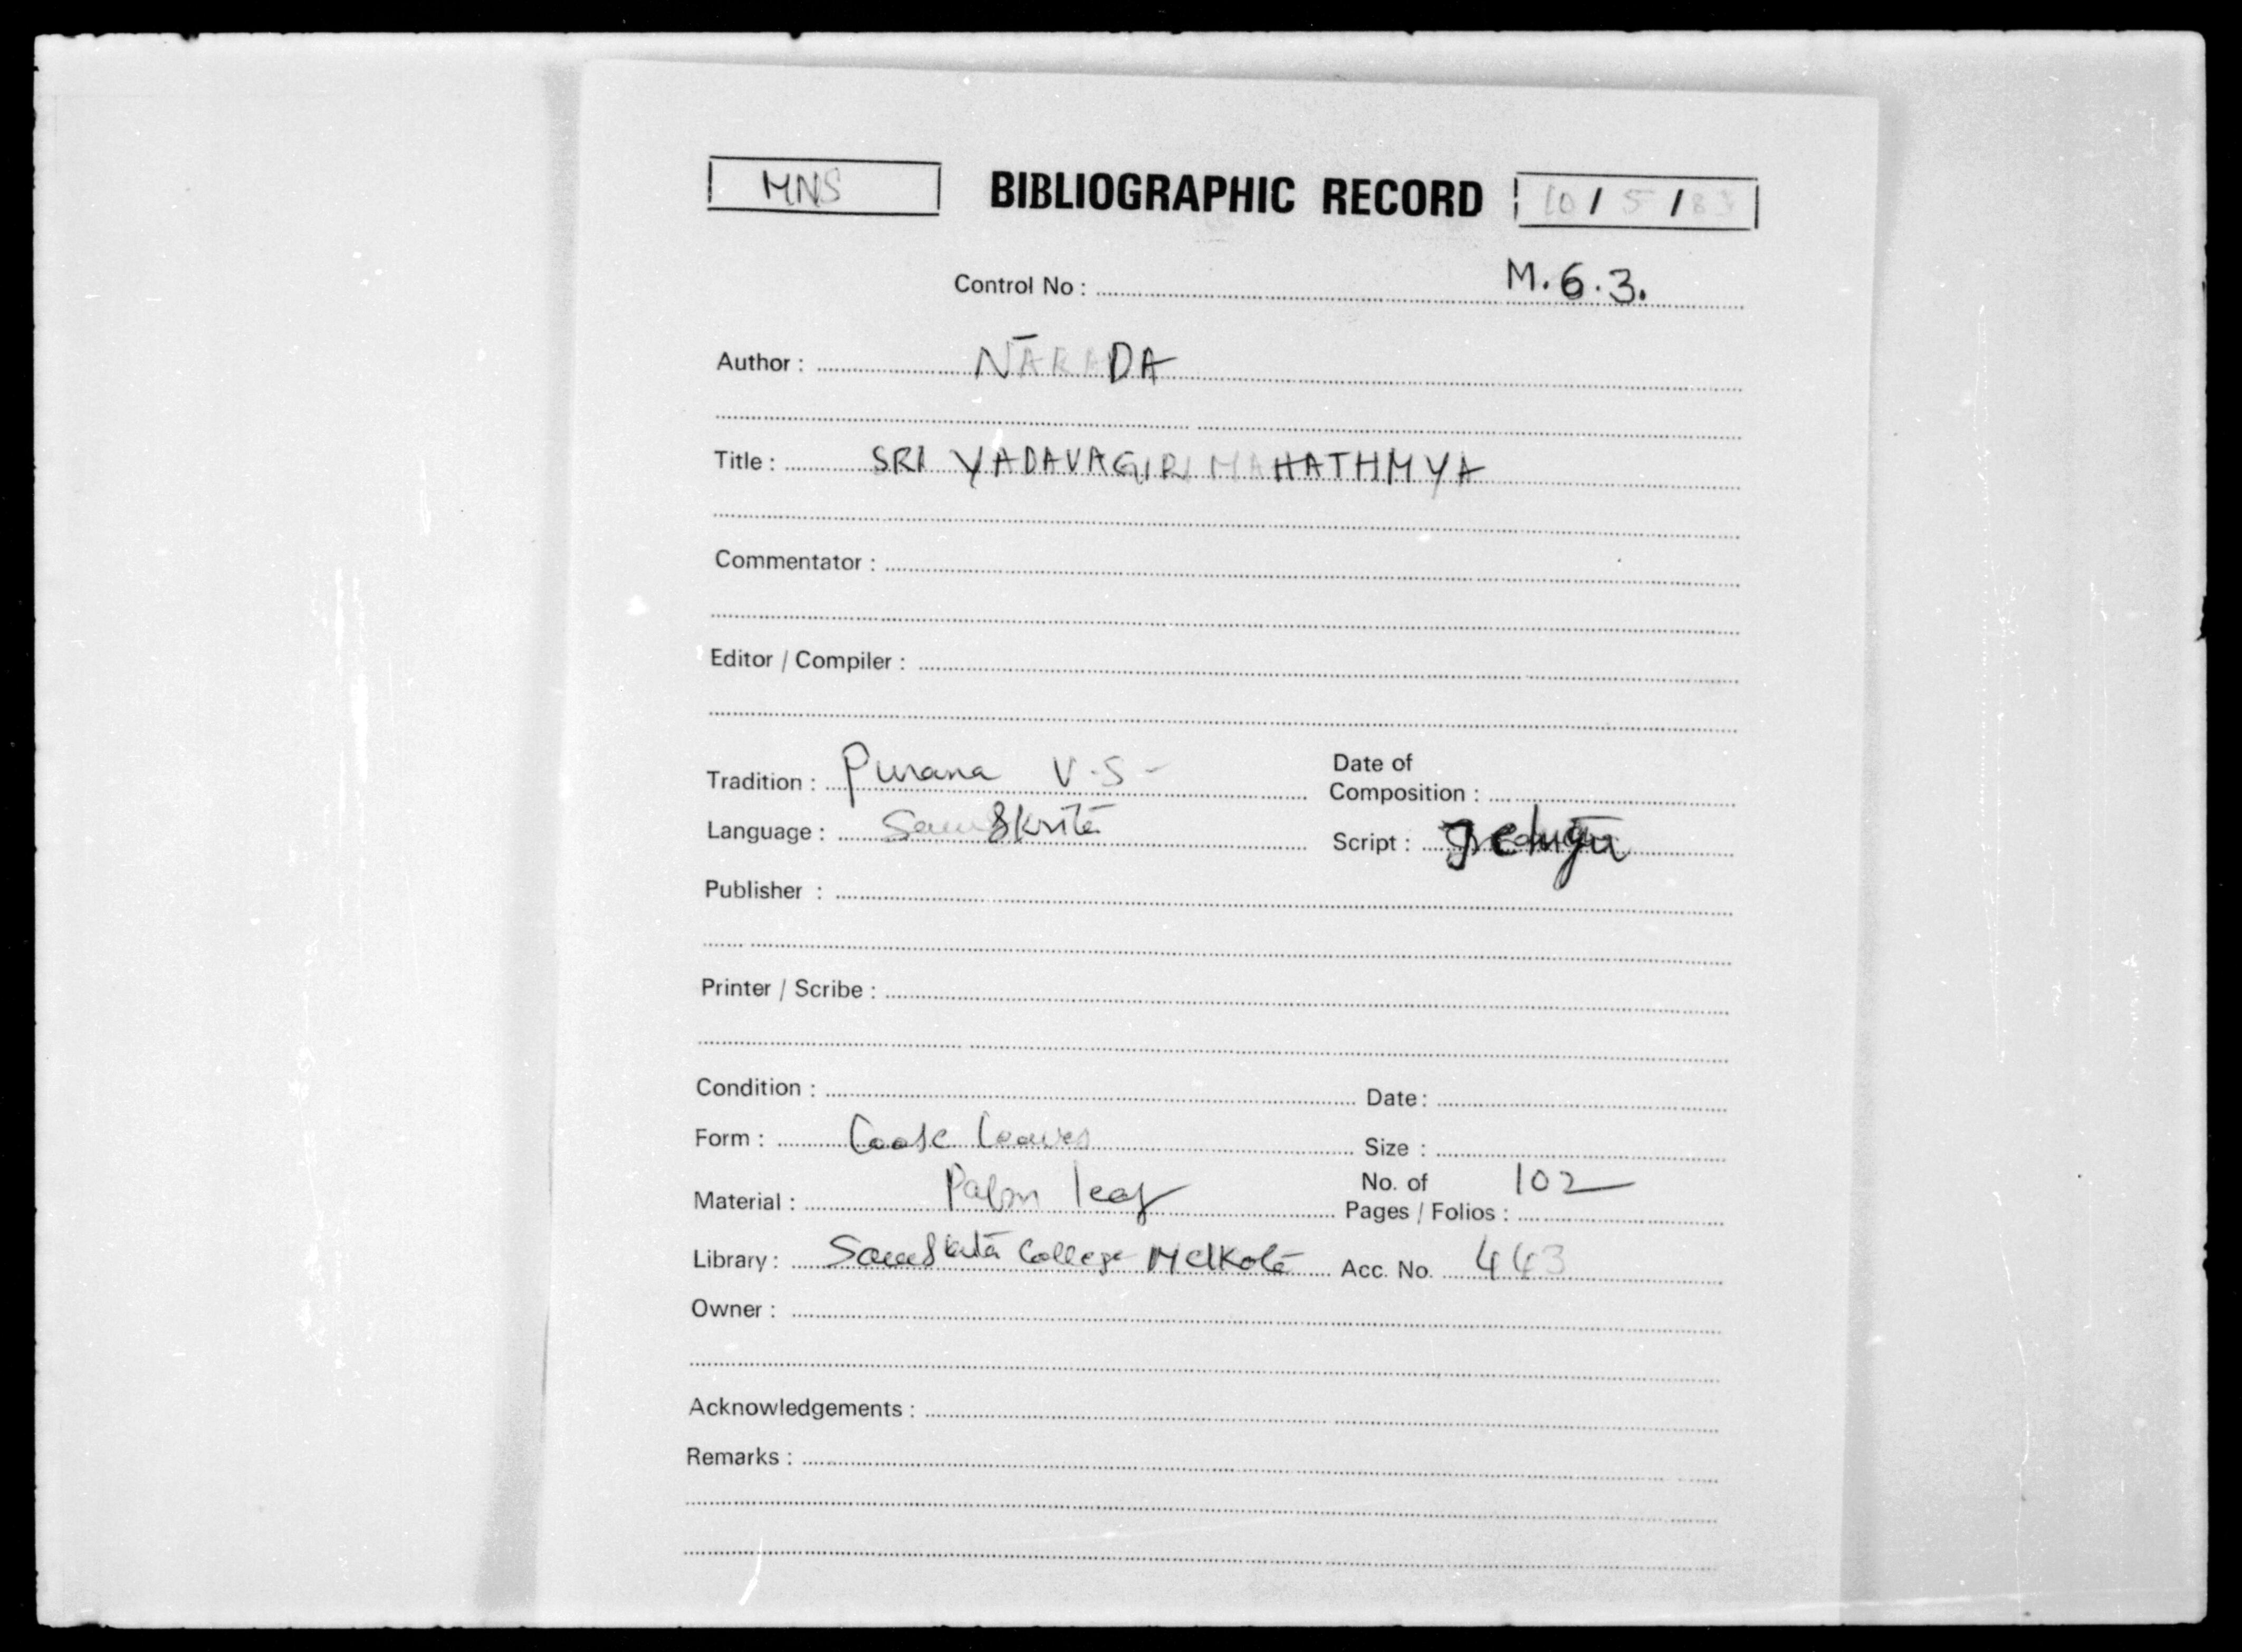 MNS BIBLIOGRAPHIC RECORD 10 / 5 / 83
Control No : M.6.3.
Author : NĀRADA
Title : SRI YADAVAGIRI MAHATHMYA
Commentator :
Editor / Compiler :
Tradition : Purana V.S- Date of Composition :
Language : Samskrita Script : Telugu
Publisher :
Printer / Scribe :
Condition : Date :
Form : Loose leaves Size :
Material : Palm leaf No. of Pages / Folios : 102
Library : Samskrita College Melkote Acc. No. 443
Owner :
Acknowledgements :
Remarks :